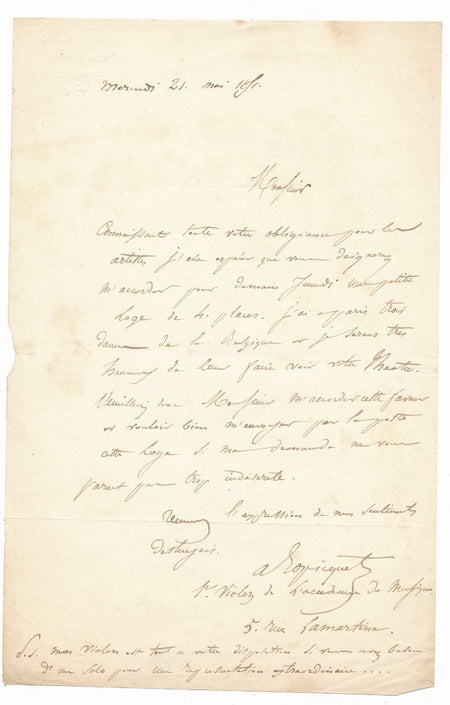 Mercredi 21. mai 1851.
Monsieur
Connaissant toute votre obligeance pour les
artistes j'ose espérer que vous daignerez
m'accorder pour demain Jeudi une petite
loge de 4. places. j'ai a paris trois
dames de la Belgique et je serais tres
heureux de leur faire voir votre Theatre.
Veuillez donc Monsieur m'accorder cette faveur
et vouloir bien m'envoyer par la poste
cette loge si ma demande ne vous
parait pas trop indiscrete.
recevez l'expression de mes sentiments
distingués.
a Ropicquet
1er Violon de L'académie de Musique
5. rue Lamartine.
P.S. mon Violon est tout a votre disposition si vous avez besoin
d'un solo pour une representation extraordinaire ....